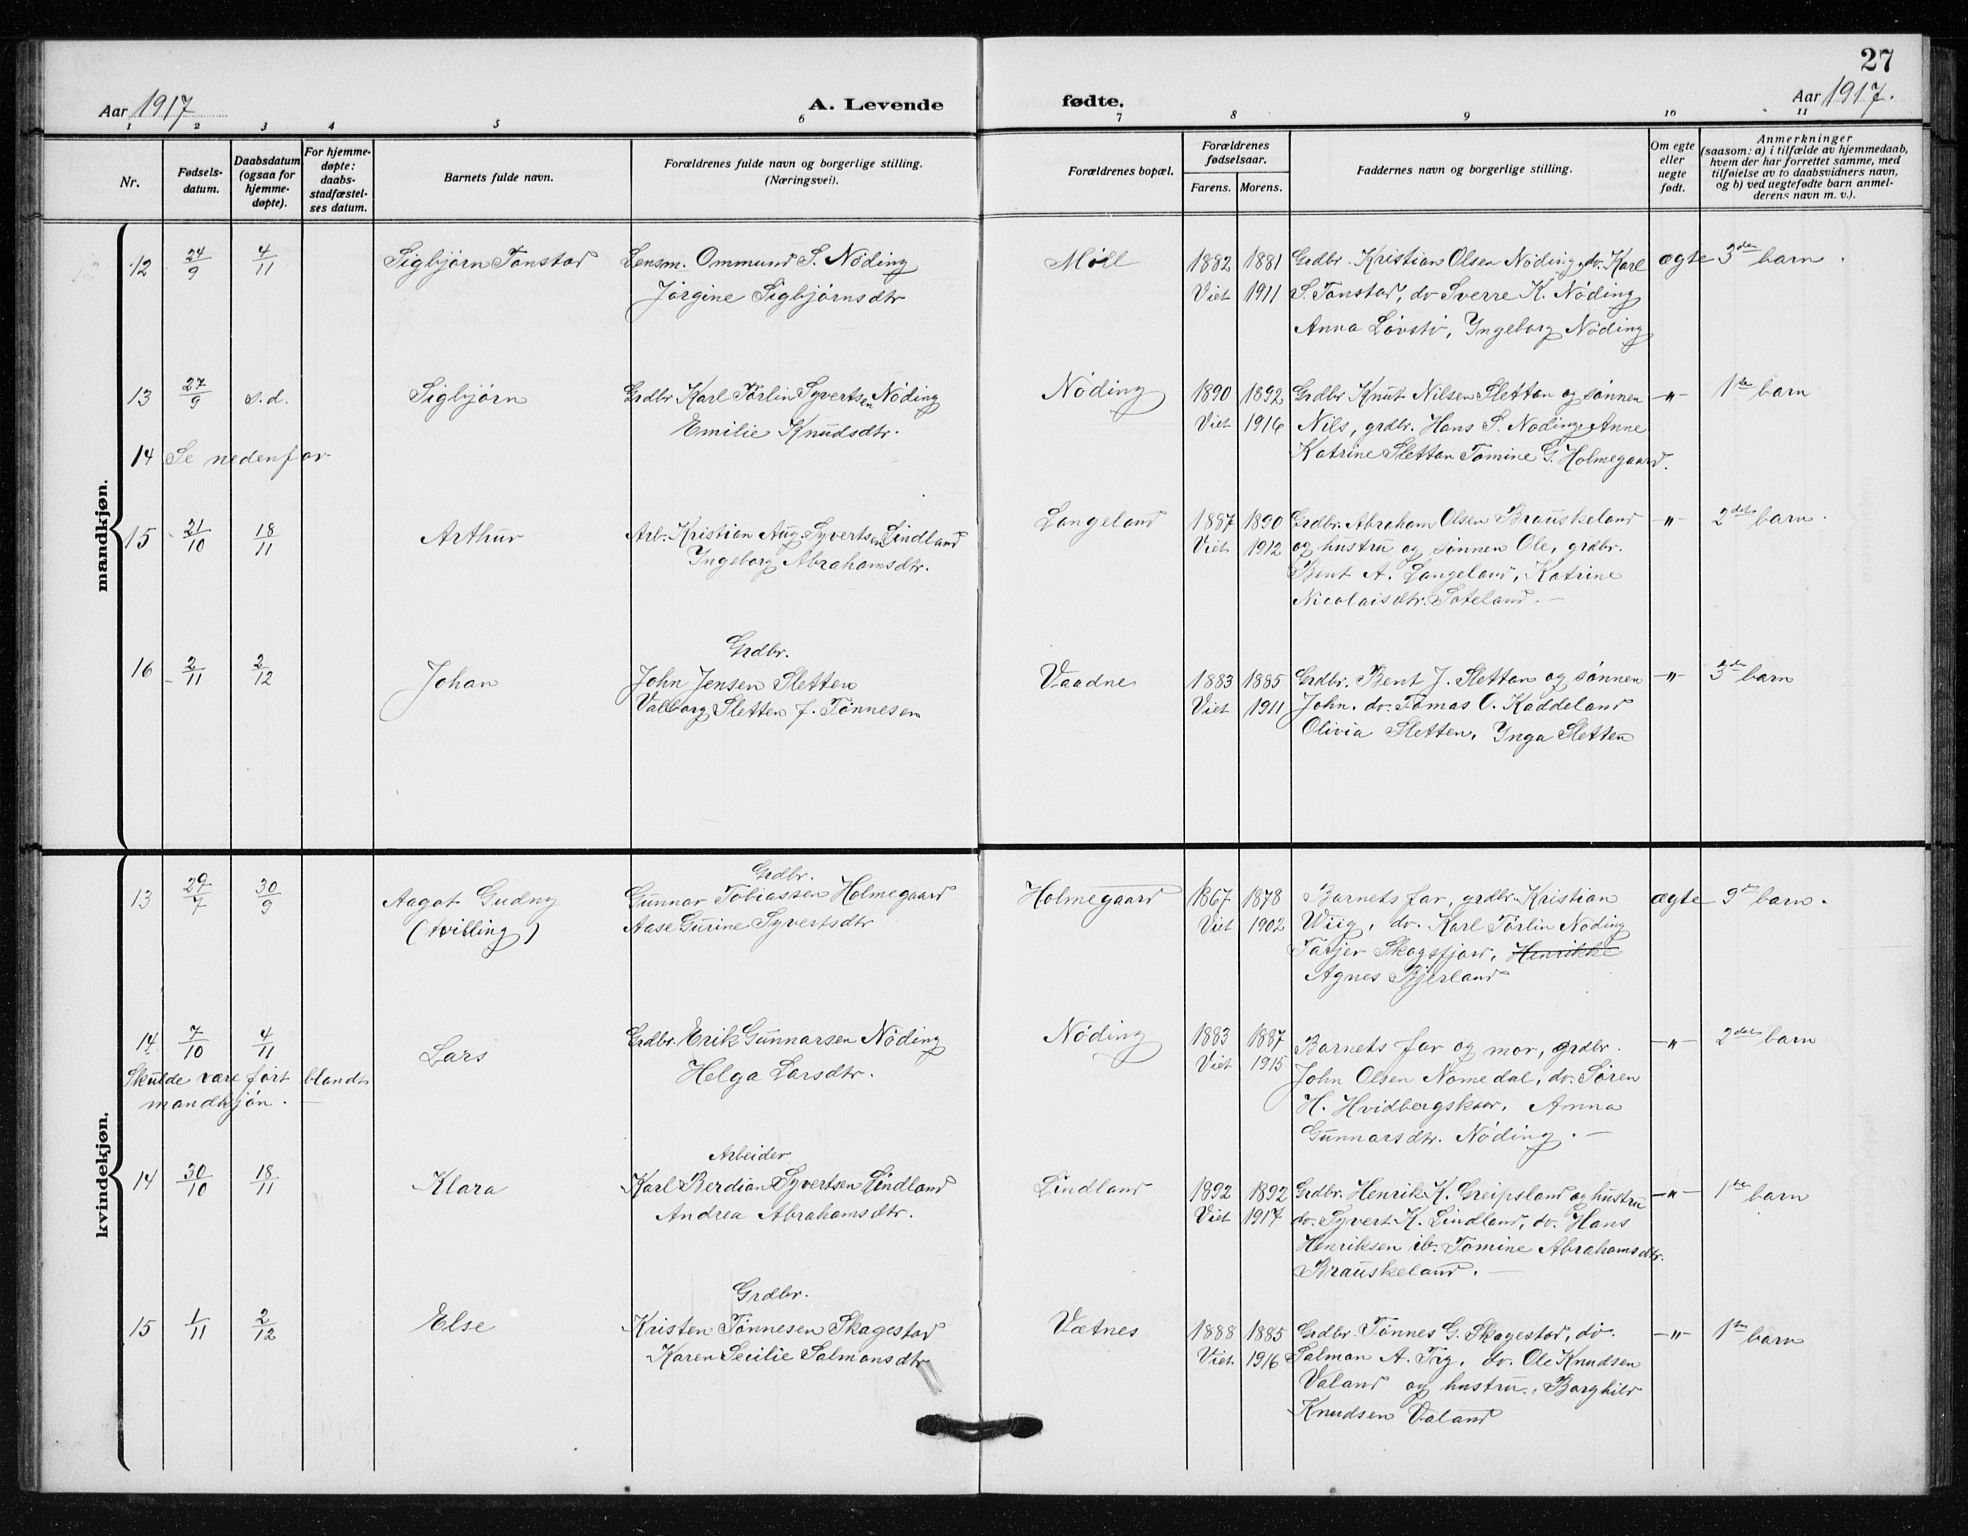 27
Aar 1917 A. Levende fødte. Aar 1917.
1 2 3 4 5 6 7 8 9 10 11
Nr.
Fødsels-
datum.
Daabsdatum
(ogsaa for
hjemme-
døpte).
For hjemme-
døpte:
daabs-
stadfæstel-
ses datum.
Barnets fulde navn.
Forældrenes fulde navn og borgerlige stilling.
(Næringsvei).
Forældrenes bopæl.
Forældrenes
fødselsaar.
Farens. Morens.
Faddernes navn og borgerlige stilling.
Om egte
eller
uegte
født.
Anmerkninger
(saasom: a) i tilfælde av hjemmedaab,
hvem der har forrettet samme, med
tilføielse av to daabsvidners navn,
og b) ved uegtefødte barn anmel-
derens navn m. v.).
mandkjøn.
12 24/9 4/11 Sigbjørn Tonstad Lensm. Ommund S. Nöding Möll 1882 1881 Grdbr. Kristian Olsen Nöding, do. Karl ægte 3die barn.
Jörgine Sigbjörnsdtr Viet 1911 S. Tonstad, do Sverre K. Nöding
Anna Lövstö, Ingeborg Nöding
13 27/9 s.d. Sigbjörn Grdbr Karl Törlin Syvertsen Nöding Nöding 1890 1892 Grdbr Knut Nilsen Sletten og sönnen -"- 1ste barn
Emilie Knudsdtr. Viet 1916 Nils, grdbr. Hans S. Nöding, Anne
14 Se nedenfor Katrine Sletten Tomine G. Holmegaard.
15 21/10 18/11 Arthur Arb. Kristian Aug. Syvertsen Lindland Langeland 1887 1890 Grdbr. Abraham Olsen Brauskeland " 2det barn.
Ingeborg Abrahamsdtr. Viet 1912 og hustru og sønnen Ole, grdbr.
Bent A. Langeland, Katrine
Nicolaisdtr. Foteland. -
16 2/11 2/12 Johan Grdbr.
John Jensen Sletten Vaadne 1883 1885 Grdbr. Bent J. Sletten og sønnen -"- 3die barn
Valborg Sletten f. Tønnesen Viet 1911 John, do. Tomas O. Kaddeland
Olivia Sletten, Inga Sletten
kvindekjøn.
13 29/7 30/9 Aagot Gudny Grdbr.
Gunnar Tobiassen Holmegaard Holmegaard 1867 1878 Barnets far, grdbr. Kristian ægte 9de barn.
(tvilling) Aase Gurine Syvertsdtr Viet 1902 Wiig, do. Karl Törlin Nöding
Tarjer Skagsfjord, Henrikke
Agnes Bjerland
14 7/10 4/11 Lars Grdbr. Erik Gunnarsen Nöding Nöding 1883 1887 Barnets far og mor, grdbr. -"- 2det barn
Skulde være ført blandt Helga Larsdtr. Viet 1915 John Olsen Nomedal, do. Søren
mandkjön. - H. Hvidbergskaar, Anna
Gunnarsdtr. Nöding. -
14 30/10 18/11 Klara Arbeider
Karl Berdian Syvertsen Lindland Lindland 1892 1892 Grdbr. Henrik K. Greipsland og hustru -"- 1ste barn
Andrea Abrahamsdtr. Viet 1917 do. Syvert K. Lindland, do. Hans
Henriksen ib. Tomine Abrahamsdtr.
Brauskeland. -
15 1/11 2/12 Else Grdbr.
Kristen Tønnesen Skagestad Vætnes 1888 1885 Grdbr. Tønnes G. Skagestad, do. -"- 1ste barn
Karen Secilie Salmonsdtr Viet 1916 Salman A. Try, do. Ole Knudsen
Valand og hustru, Borghild
Knudsen Valand